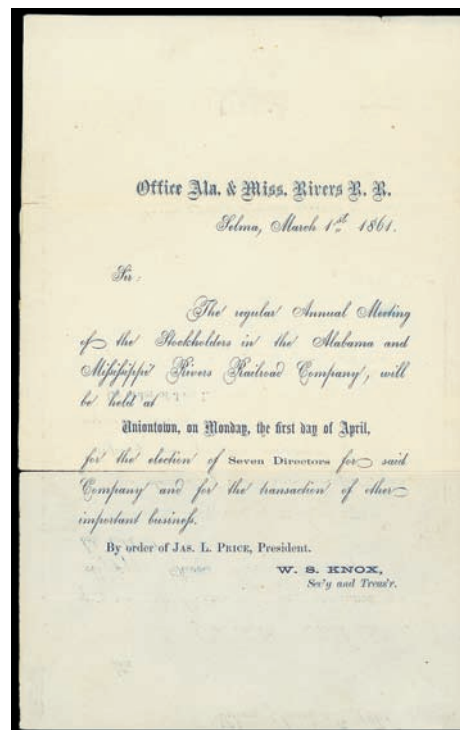 Office Ala. & Miss. Rivers R. R.
Selma, March 1st 1861.
Sir:
The regular Annual Meeting
of the Stockholders in the Alabama and
Mississippi Rivers Railroad Company, will
be held at
Uniontown, on Monday, the first day of April,
for the election of Seven Directors for said
Company and for the transaction of other
important business.
By order of JAS. L. PRICE, President.
W. S. KNOX,
Sec'y and Treas'r.